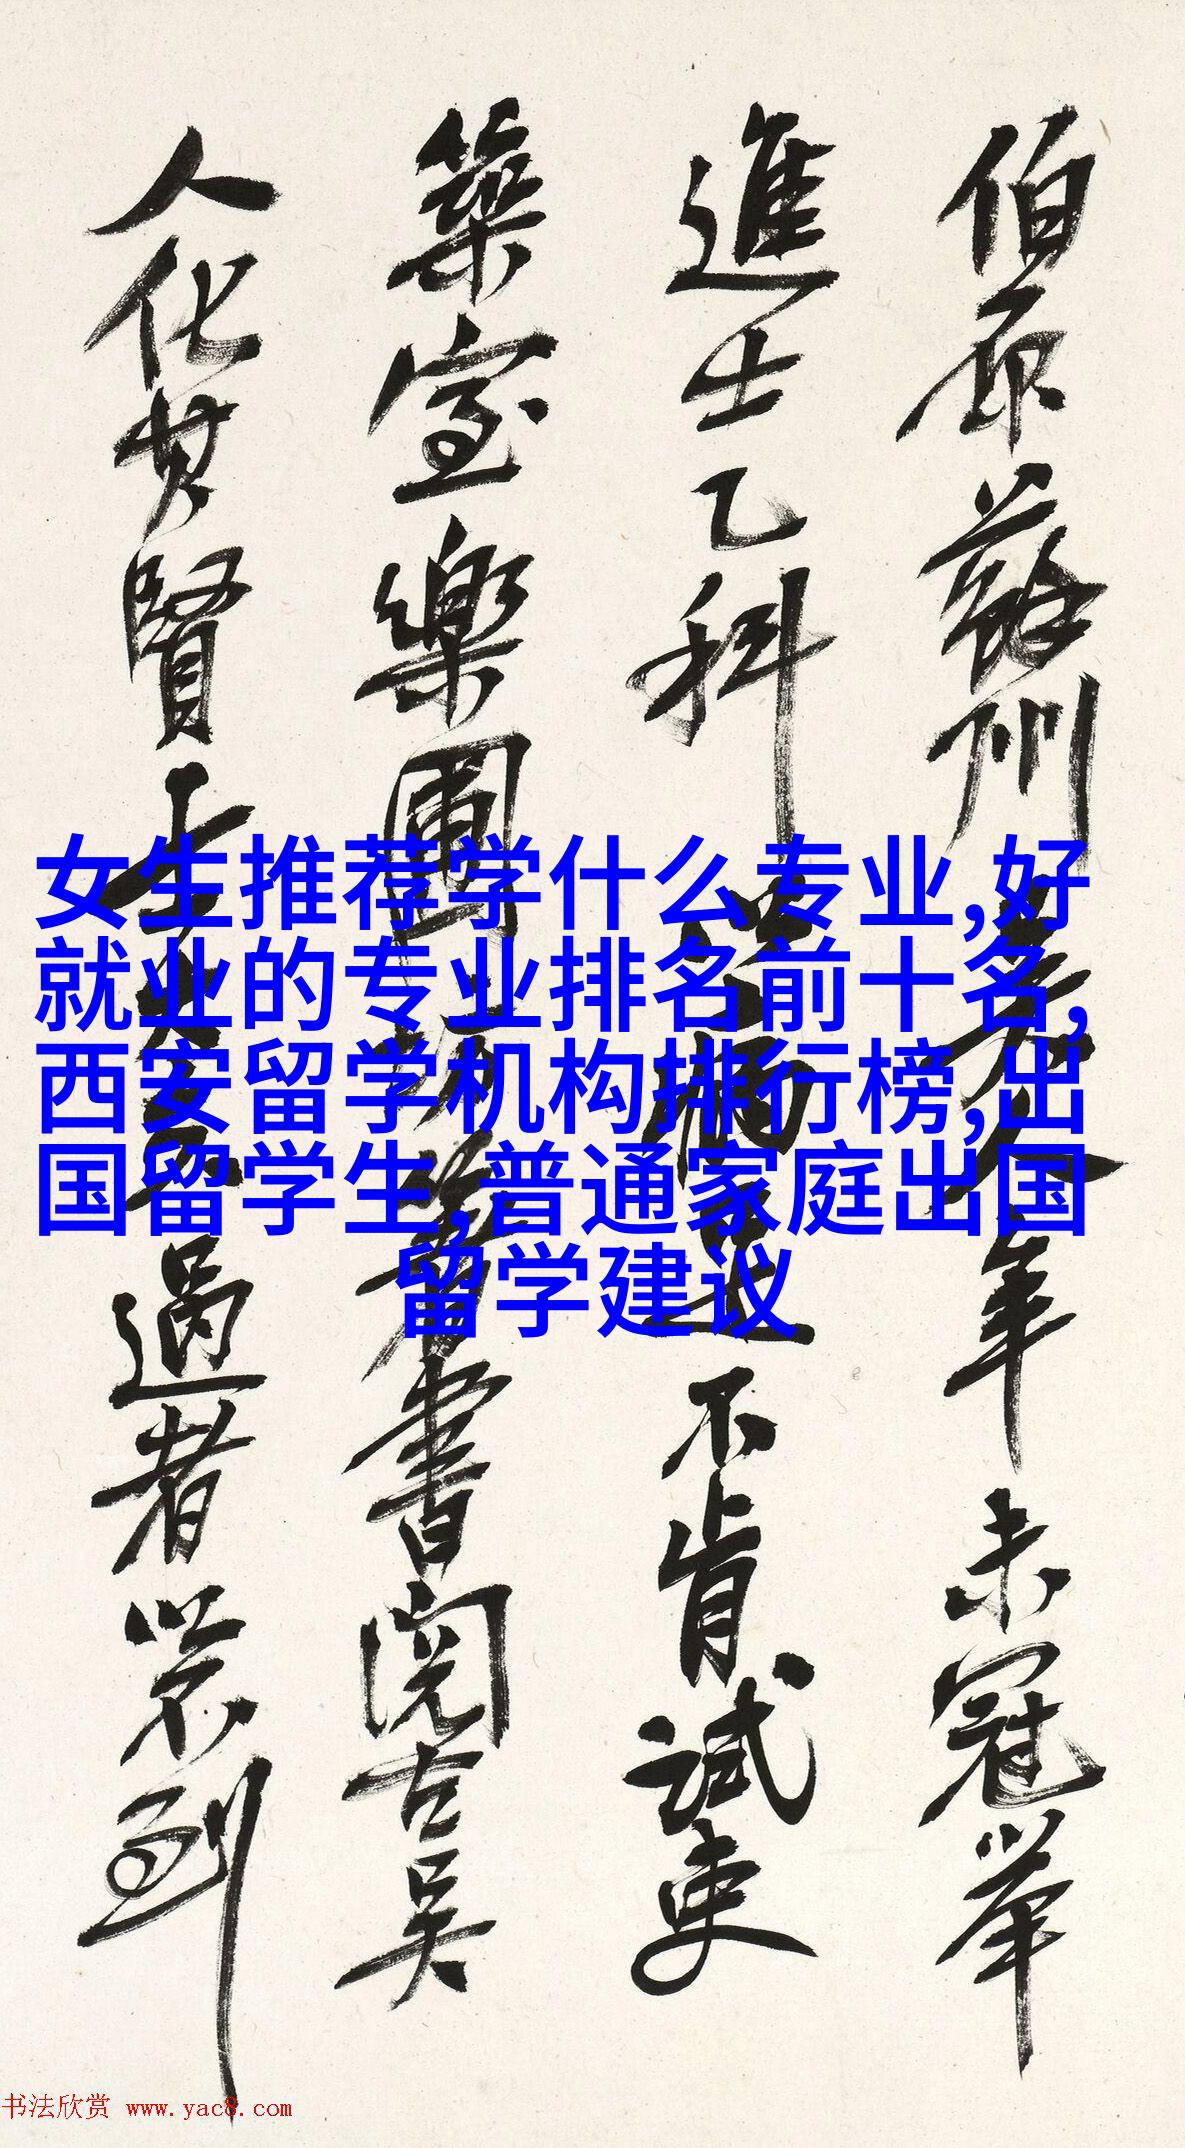 伯原蘇州
年未冠舉
進士乙科
不肯試吏
築室樂圃
著書閱古吳
人化其賢
過者以不到
女生推荐学什么专业,好
就业的专业排名前十名,
西安留学机构排行榜,出
国留学生,普通家庭出国
留学建议
书法欣赏 www.yac8.com